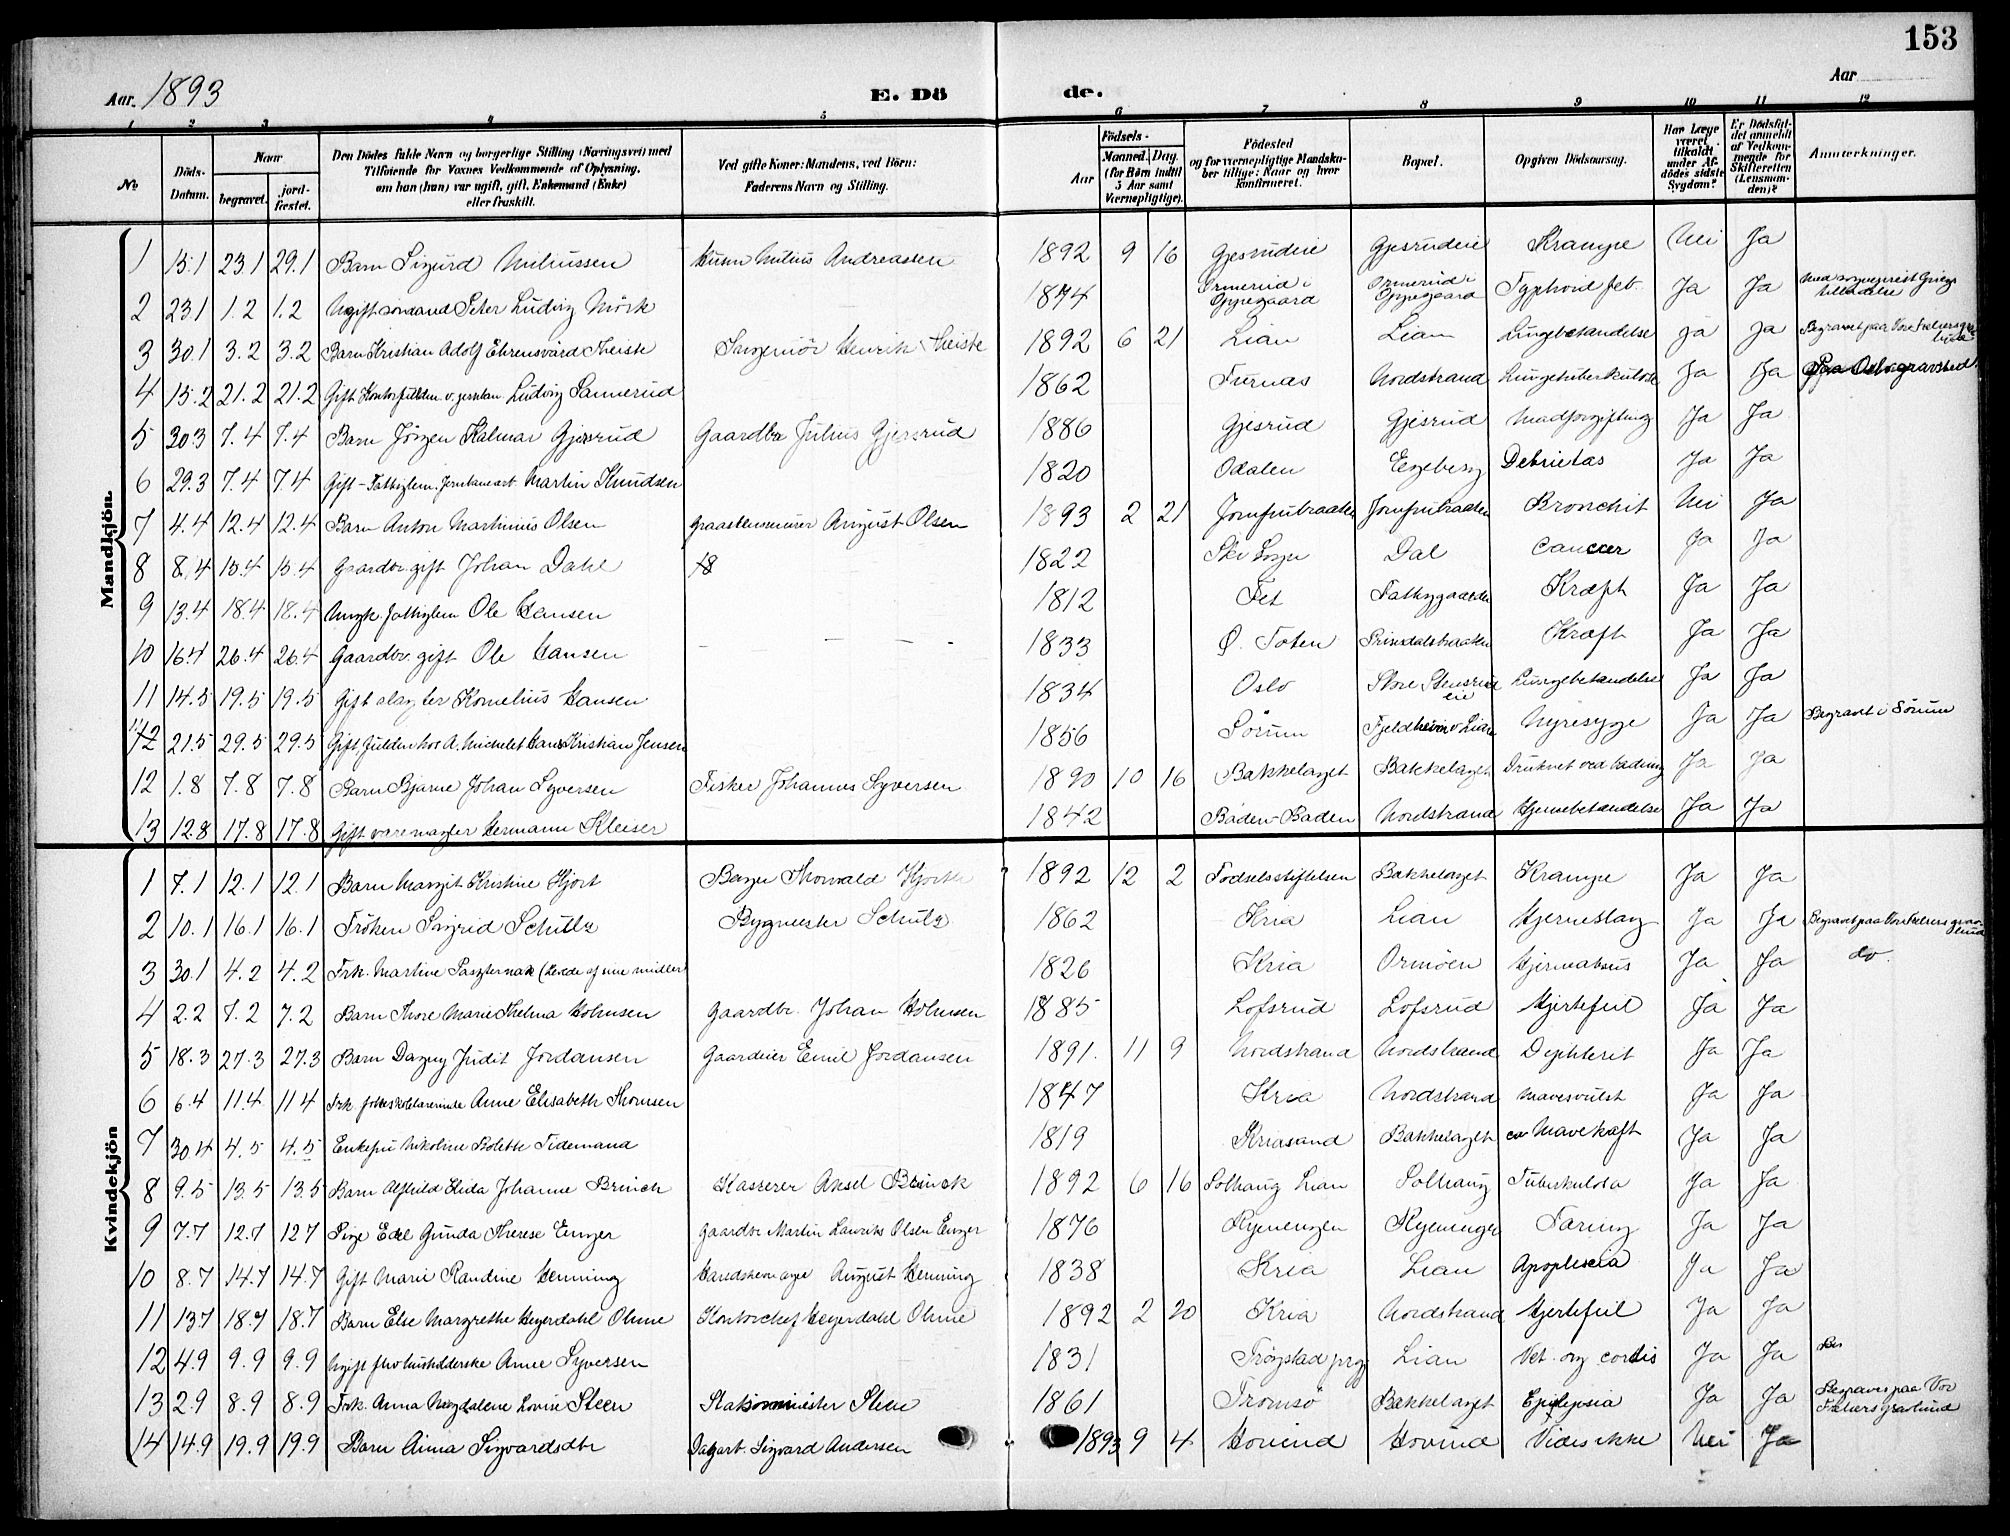 153
Aar. 1893
E. Dö
de.
Aar
1 2 3 4 5 6 7 8 9 10 11 12
No
Döds-Datum.
Naar
begravet.
jord-fæstet.
Den Dödes fulde Navn og borgerlige Stilling (Næringsvei) med
Tilföiende for Voxnes Vedkommende af Oplysning,
om han (hun) var ugift, gift, Enkemand (Enke)
eller fraskilt.
Ved gifte Koner: Mandens, ved Börn:
Faderens Navn og Stilling.
Födsels-
Aar
Maaned. Dag.
(for Börn indtil
5 Aar samt
Værnepligtige).
Födested
og for værnepligtige Mandska-
ber tillige: Naar og hvor
konfirmeret.
Bopæl.
Opgiven Dödsaarsag.
Har Læge
været
tilkaldt
under Af-
dödes sidste
Sygdom?
Er Dödsfal-
det anmeldt
af Vedkom-
mende for
Skifteretten
(Lensman-
den)?
Anmærkninger.
Mandkjön.
1 15.1 23.1 29.1 Barn Sigurd Miliussen Husm Milius Andreassen 1892 9 16 Gjesrudeie Gjesrudeie Krampe Nei Ja
2 23.1 1.2 1.2 Ugift Peter Ludvig Mörk 1874 Ormerud i Oppegaard Ormerud i Oppegaard Typhoid feb. Ja Ja Med sogneprest Griegs tilladelse
3 30.1 3.2 3.2 Barn Kristian Adolf Ehrensvärd Theiste Ingeniör Henrik Theiste 1892 6 21 Lian Lian Lungebetændelse Ja Ja Begravet paa Vor Frelsers
4 15.2 21.2 21.2 Gift Ludvig Sannerud 1862 Furnæs Nordstrand Lungetuberkulose Ja Ja Paa Oslo gravsted
5 30.3 7.4 7.4 Barn Jörgen Kalmar Gjesrud Gaardbr Julius Gjersrud 1886 Gjesrud Gjesrud Madforgiftning Ja Ja
6 29.3 7.4 7.4 Gift - Fattiglem. Martin Knudsen 1820 Odalen Engeberg Debrietas Ja Ja
7 4.4 12.4 12.4 Barn Anton Martinius Olsen Graastensmurer August Olsen 1893 2 21 Jomfrubraaten Jomfrubraaten Bronchit Nei Ja
8 8.4 15.4 15.4 Gaardbr. gift Johan Dahl 18 1822 Ski Sogn Dal Cancer Ja Ja
9 13.4 18.4 18.4 Ungk. fattiglem Ole Hansen 1812 Fet Fattiggaarden Kræft Ja Ja
10 16.4 26.4 26.4 Gaardbr. gift Ole Hansen 1833 Ø. Toten Prinsdalsbraaten Kræft Ja Ja
11 14.5 19.5 19.5 Gift slagter Kornelius Hansen 1834 Oslo Store Stensrud eie Lungebetændelse Ja Ja
12 21.5 29.5 29.5 Gift, fuldm hos A. Michelet Hans Kristian Jensen 1856 Sörum Fjeldheim v Lian Nyresyge Ja Ja Begravet i Sörum
12 1.8 7.8 7.8 Barn Bjarne Johan Syversen Fisker Johannes Syversen 1890 10 16 Bækkelaget Bækkelaget Druknet ved badning Ja Ja
13 12.8 17.8 17.8 Gift varemægler Hermann Kleiser 1842 Baden-Baden Nordstrand Hjernebetændelse Ja Ja
Kvindekjön
1 7.1 12.1 12.1 Barn Margit Kristine Hjort Bager Thorvald Hjorth 1892 12 2 Födselsstiftelsen Bækkelaget Krampe Ja Ja
2 10.1 16.1 16.1 Fröken Sigrid Schultz Bygmester Schultz 1862 Kria Lian Hjerneslag Ja Ja Begravet paa Vor Frelsers gravlund
3 30.1 4.2 4.2 Frk. Martine Paszternak 1826 Kria Ormöen Hjerneabsces Ja Ja do.
4 2.2 7.2 7.2 Barn Thore Marie Thelma Holmsen Gaardbr. Johan Holmsen 1885 Lofsrud Lofsrud Hjertefeil Ja Ja
5 18.3 27.3 27.3 Barn Dagny Judit Jordansen Gaardeier Emil Jordansen 1891. 11 9 Nordstrand Nordstrand Diphterit Ja Ja
6 6.4 11.4 11.4 Frk. folkeskolelærerinde Anne Elisabeth Thomsen 1847 Kria Nordstrand Mavesvulst Ja Ja
7 30.4 4.5 4.5 Enkefru Nikoline Bolette Tidemand 1819 Kriasand Bækkelaget Mavekræft Ja Ja
8 9.5 13.5 13.5 Barn Alfhild Johanne Brinch Kasserer Aksel Brinck 1892 6 16 Solhaug Lian Solhaug Tuberkulosa Ja Ja
9 7.7 12.7 12.7 Pige Edel Gunda Therese Enger Gaardbr Martin Laurits Olsen Enger 1876 Ryenengen Ryenengen Tæring Ja Ja
10 8.7 14.7 14.7 Gift Marie Randine Henning August Henning 1838 Kria Lian Apoplexia Ja Ja
11 13.7 18.7 18.7 Barn Else Margrethe Heyerdahl Ohme Kontorchef Heyerdahl Ohme 1892 2 20 Kria Nordstrand Hjertefeil Ja Ja
12 4.9 9.9 9.9 Ugift fhv husholderske Anne Syversen 1831 Trögstad prgj Lian Vet. org cordis Ja Ja
13 2.9 8.9 8.9 Frk. Anna Magdalene Lovise Steen Stationsmester Steen 1861 Tromsö Bækkelaget Epilepsia Ja Ja Begraves paa Vor Frelsers Gravlund
14 14.9 19.9 19.9 Barn Aina Sigvardsdtr Dagarb. Sigvard Andersen 1893 9 4 Hovind Hovind Vides ikke Nei Ja